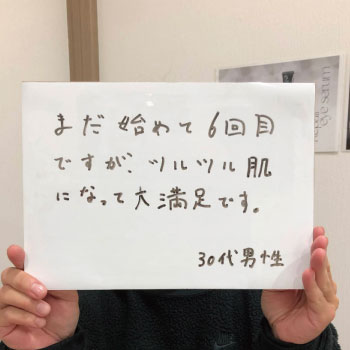 まだ始めて6回目
ですが、ツルツル肌
になって大満足です。
30代男性
eye serum